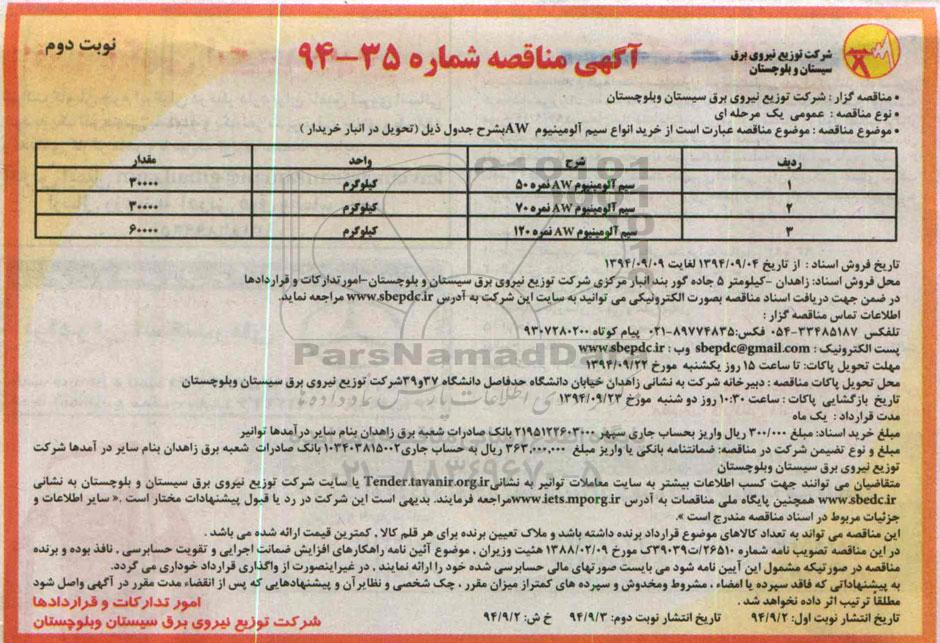 نوبت دوم
آگهی مناقصه شماره ۳۵-۹۴
شرکت توزیع نیروی برق
سیستان و بلوچستان
• مناقصه گزار : شرکت توزیع نیروی برق سیستان وبلوچستان
• نوع مناقصه : عمومی یک مرحله ای
• موضوع مناقصه : موضوع مناقصه عبارت است از خرید انواع سیم آلومینیوم AWبشرح جدول ذیل (تحویل در انبار خریدار )
ردیف شرح واحد مقدار
۱ سیم آلومینیوم AW نمره ۵۰ کیلوگرم ۳۰۰۰۰
۲ سیم آلومینیوم AW نمره ۷۰ کیلوگرم ۳۰۰۰۰
۳ سیم آلومینیوم AW نمره ۱۲۰ کیلوگرم ۶۰۰۰۰
تاریخ فروش اسناد : از تاریخ ۱۳۹۴/۰۹/۰۴ لغایت ۱۳۹۴/۰۹/۰۹
محل فروش اسناد: زاهدان -کیلومتر ۵ جاده گور بند انبار مرکزی شرکت توزیع نیروی برق سیستان و بلوچستان-امورتدارکات و قراردادها
در ضمن جهت دریافت اسناد مناقصه بصورت الکترونیکی می توانید به سایت این شرکت به آدرس www.sbepdc.ir مراجعه نماید.
اطلاعات تماس مناقصه گزار :
تلفکس ۳۳۴۸۵۱۸۷-۰۵۴ فکس:۸۹۷۷۴۸۳۵-۰۲۱ پیام کوتاه ۹۳۰۷۲۸۰۲۰۰
پست الکترونیک : sbepdc@gmail.com وب : www.sbepdc.ir
مهلت تحویل پاکات: تا ساعت ۱۵ روز یکشنبه مورخ ۱۳۹۴/۰۹/۲۲
محل تحویل پاکات مناقصه : دبیرخانه شرکت به نشانی زاهدان خیابان دانشگاه حدفاصل دانشگاه ۳۷و۳۹شرکت توزیع نیروی برق سیستان وبلوچستان
تاریخ بازگشایی پاکات : ساعت ۱۰:۳۰ روز دو شنبه مورخ ۱۳۹۴/۰۹/۲۳
مدت قرارداد : یک ماه
مبلغ خرید اسناد: مبلغ ۳۰۰/۰۰۰ ریال واریز بحساب جاری سپهر ۲۱۹۵۱۲۲۶۰۳۰۰۰ بانک صادرات شعبه برق زاهدان بنام سایر درآمدها توانیر
مبلغ و نوع تضمین شرکت در مناقصه: ضمانتنامه بانکی یا واریز مبلغ ۳۶۳,۰۰۰,۰۰۰ ریال به حساب جاری۱۰۳۴۰۳۸۱۵۰۰۲ بانک صادرات شعبه برق زاهدان بنام سایر در آمدها شرکت
توزیع نیروی برق سیستان وبلوچستان
متقاضیان می توانند جهت کسب اطلاعات بیشتر به سایت معاملات توانیر به نشانیTender.tavanir.org.ir یا سایت شرکت توزیع نیروی برق سیستان و بلوچستان به نشانی
www.sbedc.ir همچنین پایگاه ملی مناقصات به آدرس www.iets.mporg.irمراجعه فرمایند. بدیهی است این شرکت در رد یا قبول پیشنهادات مختار است .« سایر اطلاعات و
جزئیات مربوط در اسناد مناقصه مندرج است ».
این مناقصه می تواند به تعداد کالاهای موضوع قرارداد برنده داشته باشد و ملاک تعیین برنده برای هر قلم کالا ، کمترین قیمت ارائه شده می باشد .
در این مناقصه تصویب نامه شماره ۲۶۵۱۰/ت۳۹۰۳۹ک مورخ ۱۳۸۸/۰۲/۰۹ هئیت وزیران , موضوع آئین نامه راهکارهای افزایش ضمانت اجرایی و تقویت حسابرسی , نافذ بوده و برنده
مناقصه در صورتیکه مشمول این آیین نامه شود می بایست صورتهای مالی حسابرسی شده خود را ارائه نمایند , در غیراینصورت از واگذاری قرارداد خوداری می گردد.
به پیشنهاداتی که فاقد سپرده یا امضاء , مشروط ومخدوش و سپرده های کمتراز میزان مقرر , چک شخصی و نظایرآن و پیشنهادهایی که پس از انقضاء مدت مقرر در آگهی واصل شود
مطلقاً ترتیب اثر داده نخواهد شد .
تاریخ انتشار نوبت اول: ۹۴/۹/۲ تاریخ انتشار نوبت دوم: ۹۴/۹/۳ خ ش: ۹۴/۹/۲
امور تدارکات و قراردادها
شرکت توزیع نیروی برق سیستان وبلوچستان
ParsNamadData
۰۲۱-۸۸۳۴۹۶۷۰-۵